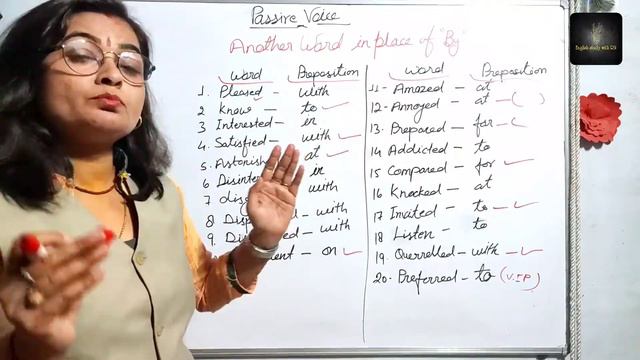 Passive Voice
Another Word in place of "By"
Word Preposition
1. Pleased - with
2 Know - to
3 Interested - in
4. Satisfied - with
5. at
6 in
7 with
8 with
9. with
on
Word Preposition
11- Amazed - at
12- Annoyed - at - ( )
13. Prepared - for - (
14 Addicted - to
15 Compared - for
16 Knocked - at
17 Invited - to -
18 Listen - to
19. Querrelled - with -
20. Preferred - to (V.I.P)
English study with